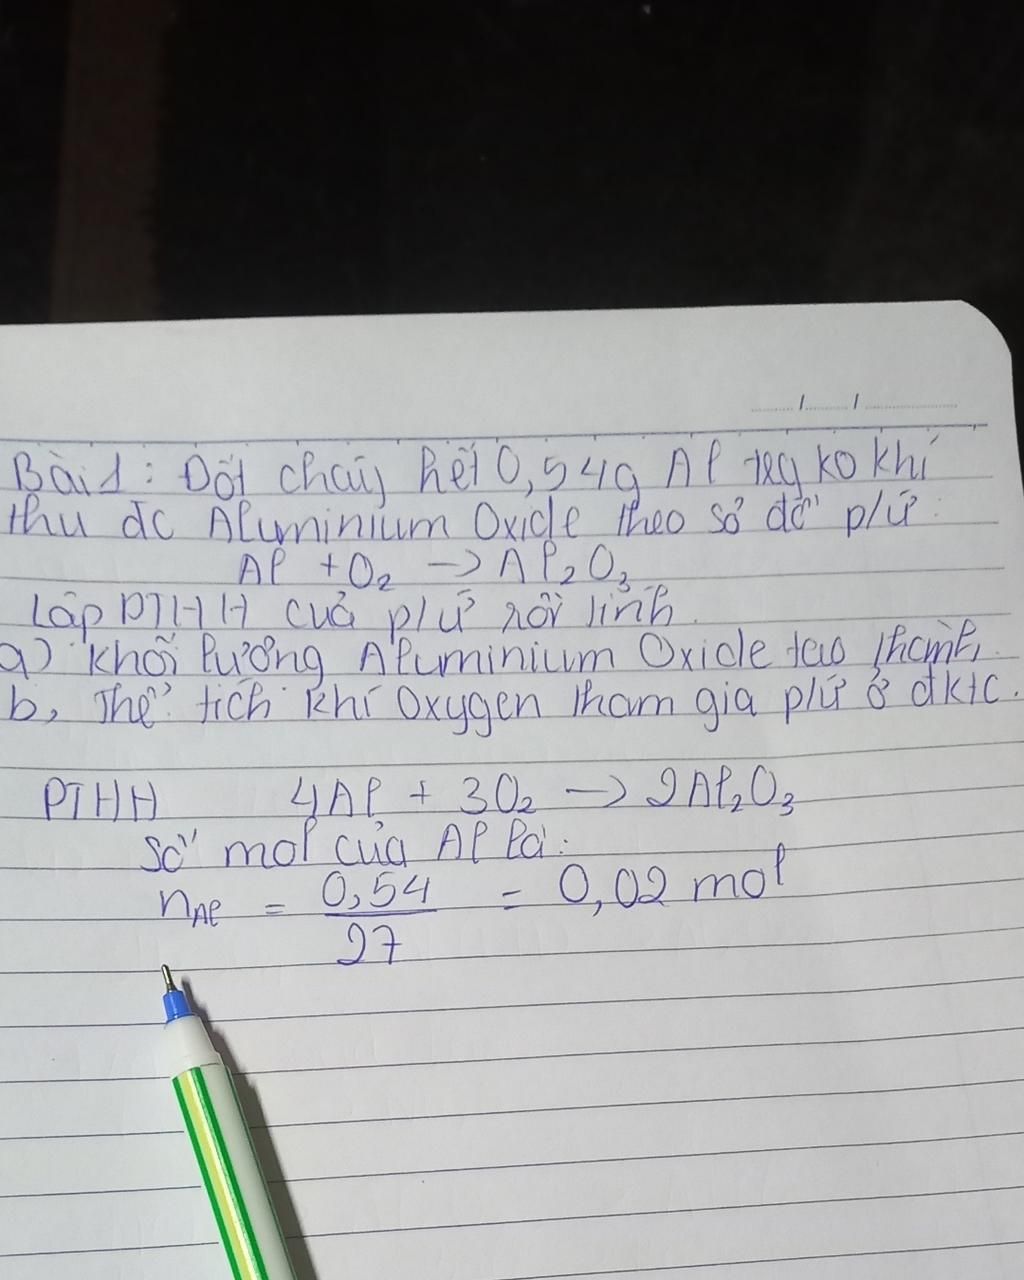 Bài 1: Đốt cháy hết 0,54g Al trg ko khí
thu đc Aluminium Oxide theo sơ đồ p/ứ:
Al + O₂ -> Al₂O₃
Lập PTHH của p/ứ rồi tính.
a) Khối lượng Aluminium Oxide tạo thành.
b, Thể tích khí Oxygen tham gia p/ứ ở đktc.
PTHH 4Al + 3O₂ -> 2Al₂O₃
Số mol của Al là:
nAl = 0,54 = 0,02 mol
27